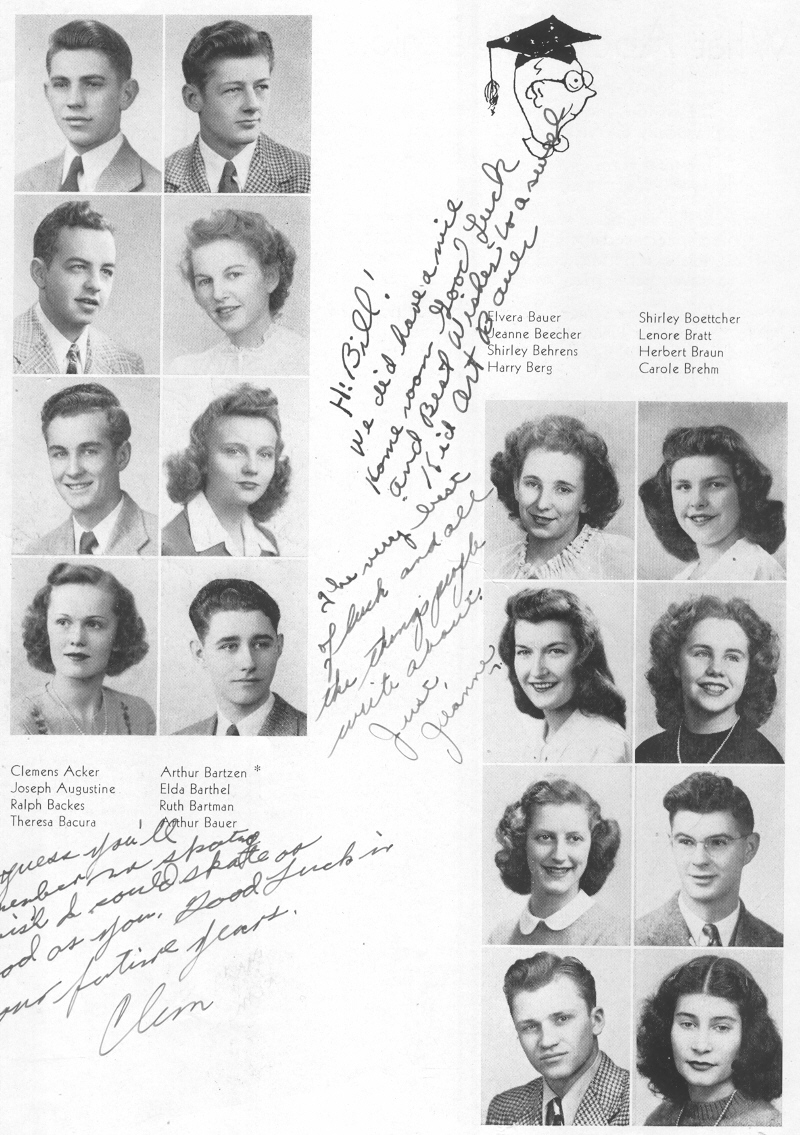 Hi Bill!
We did have a nice
home room Good Luck
and Best Wishes to a swell
Kid Art Bauer
Elvera Bauer
Jeanne Beecher
Shirley Behrens
Harry Berg
Shirley Boettcher
Lenore Bratt
Herbert Braun
Carole Brehm
The very best
of luck and all
the things people
write about.
Just,
Jeanne
Clemens Acker
Joseph Augustine
Ralph Backes
Theresa Bacura
Arthur Bartzen *
Elda Barthel
Ruth Bartman
Arthur Bauer
guess you'll
I could skate as
as you. Good Luck in
future years.
Clem